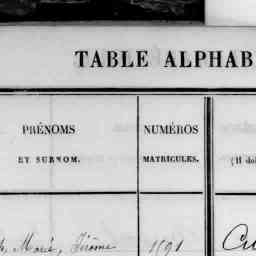 TABLE ALPHAB
PRÉNOMS
ET SURNOM.
NUMÉROS
MATRICULES.
(Il doi
Marie, Jérôme 1591